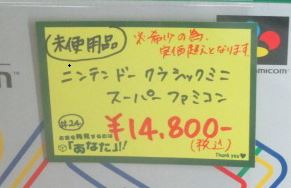 未使用品
※希少の為、
定価超えとなります。
ニンテンドー クラシックミニ
スーパーファミコン
#24
お宝を発見するのは
「あなた」!!
¥14,800-
(税込)
Thank you♥
amicom